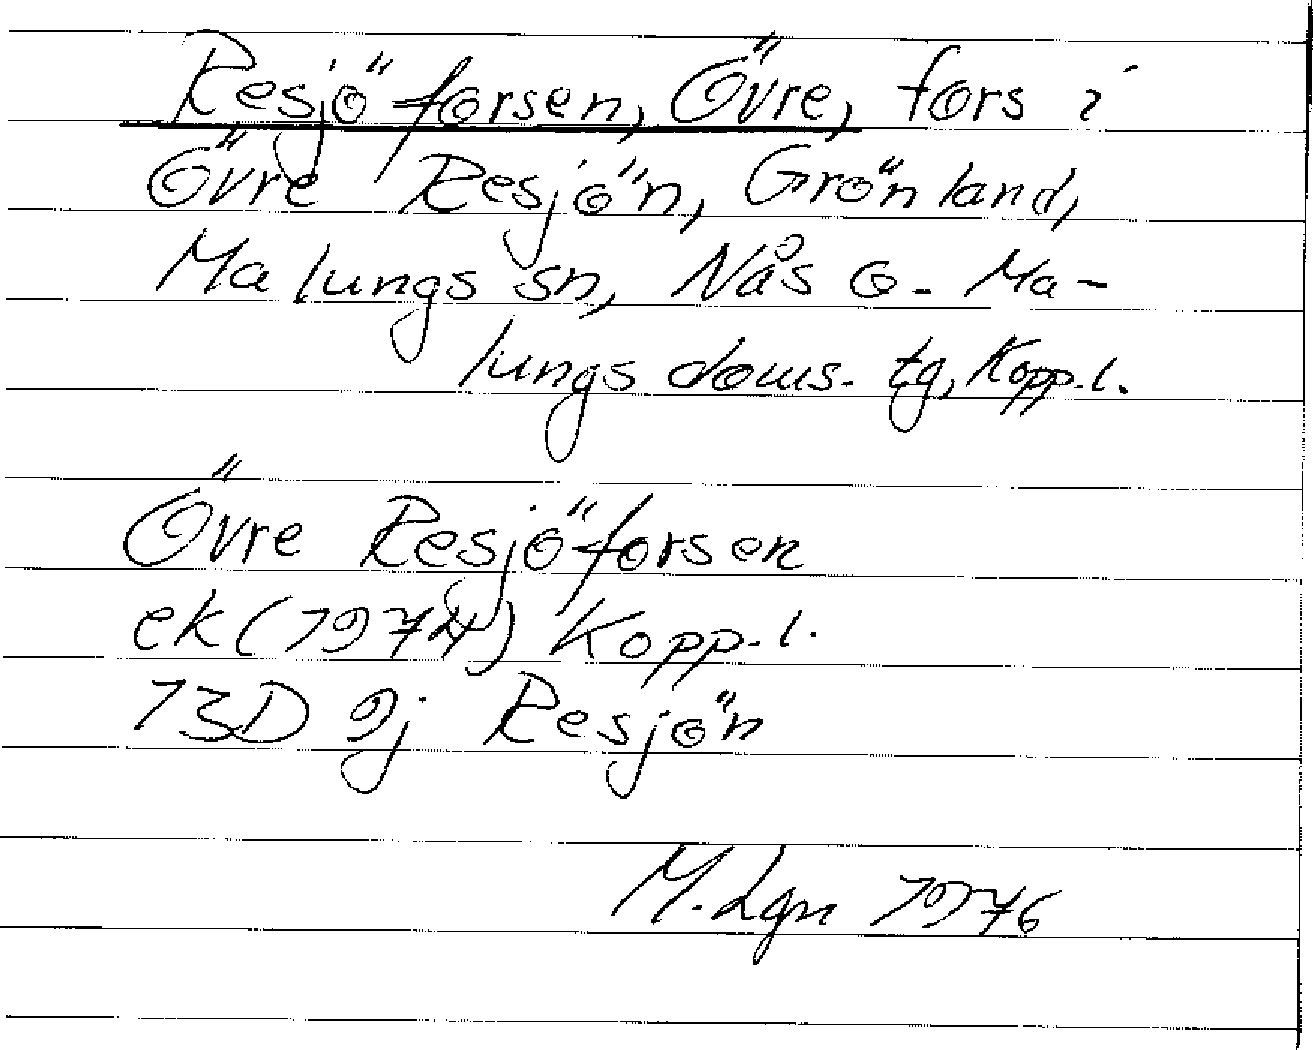 Resjöforsen, Övre, fors i
Övre Resjön, Grönland,
Malungs sn, Nås o. Ma-
lungs doms. tg, Kopp.l.
Övre Resjöforsen
ek (1974) Kopp.l.
13D 9j Resjön
M. Lgn 1976